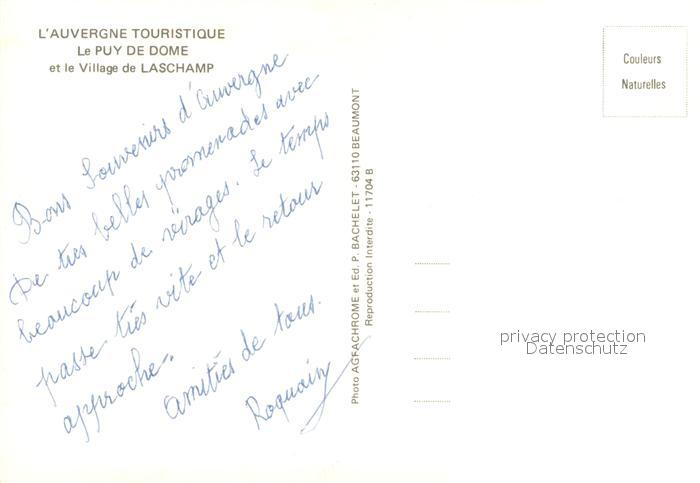 L'AUVERGNE TOURISTIQUE
Le PUY DE DOME
et le Village de LASCHAMP
Bons Souvenirs d'Auvergne
De très belles promenades avec
beaucoup de virages. Le temps
passe très vite et le retour
approche.
Amitiés de tous.
Photo AGFACHROME et Ed. P. BACHELET - 63110 BEAUMONT
Reproduction Interdite - 11704 B
Couleurs
Naturelles
privacy protection
Datenschutz